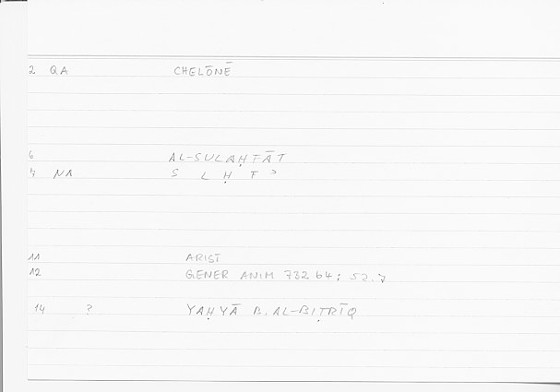 2 QA CHELŌNĒ
6 AL-SULAḤFĀT
7 NA S L Ḥ F
11 ARIST
12 GENER ANIM 732 b4; 52.7
14 ? YAḤYĀ B. AL-BIṬRĪQ